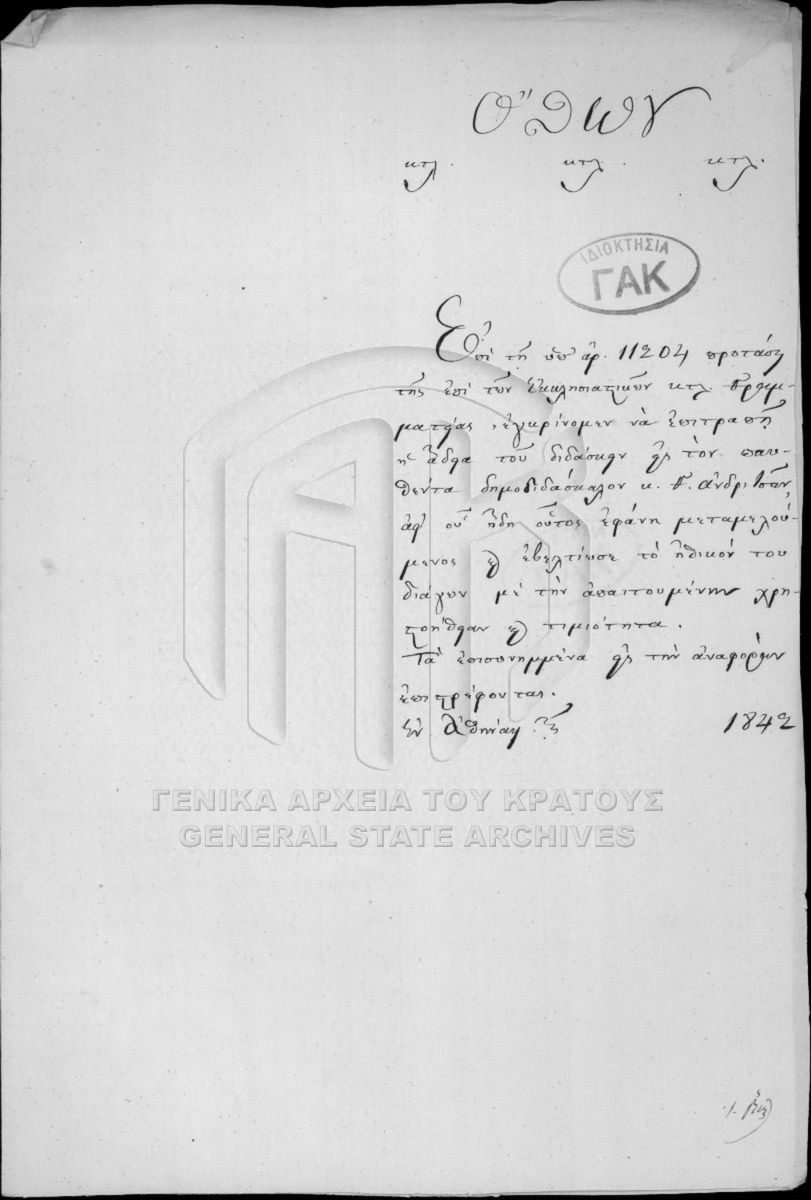 Ὄθων
κτλ. κτλ. κτλ.
ΙΔΙΟΚΤΗΣΙΑ
ΓΑΚ
Ἐπὶ τῇ ὑπ' ἀρ. 11204 προτάσει
τῆς ἐπὶ τῶν Ἐκκλησιαστικῶν κτλ. Γραμ-
ματείας, ἐγκρίνομεν νὰ ἐπιτραπῇ
ἡ ἄδεια τοῦ διδάσκειν εἰς τὸν παυ-
θέντα δημοδιδάσκαλον κ.
ἀφ' οὗ ἤδη οὗτος ἐφάνη μεταμελού-
μενος καὶ ἐβελτίωσε τὸ ἠθικόν του
διάγων μὲ τὴν ἀπαιτουμένην χρη-
στοήθειαν καὶ τιμιότητα.
Τὰ ἐπισυνημμένα εἰς τὴν ἀναφορὰν
ἐπιστρέφονται.
Ἐν Ἀθήναις τῇ 1842
ΓΕΝΙΚΑ ΑΡΧΕΙΑ ΤΟΥ ΚΡΑΤΟΥΣ
GENERAL STATE ARCHIVES